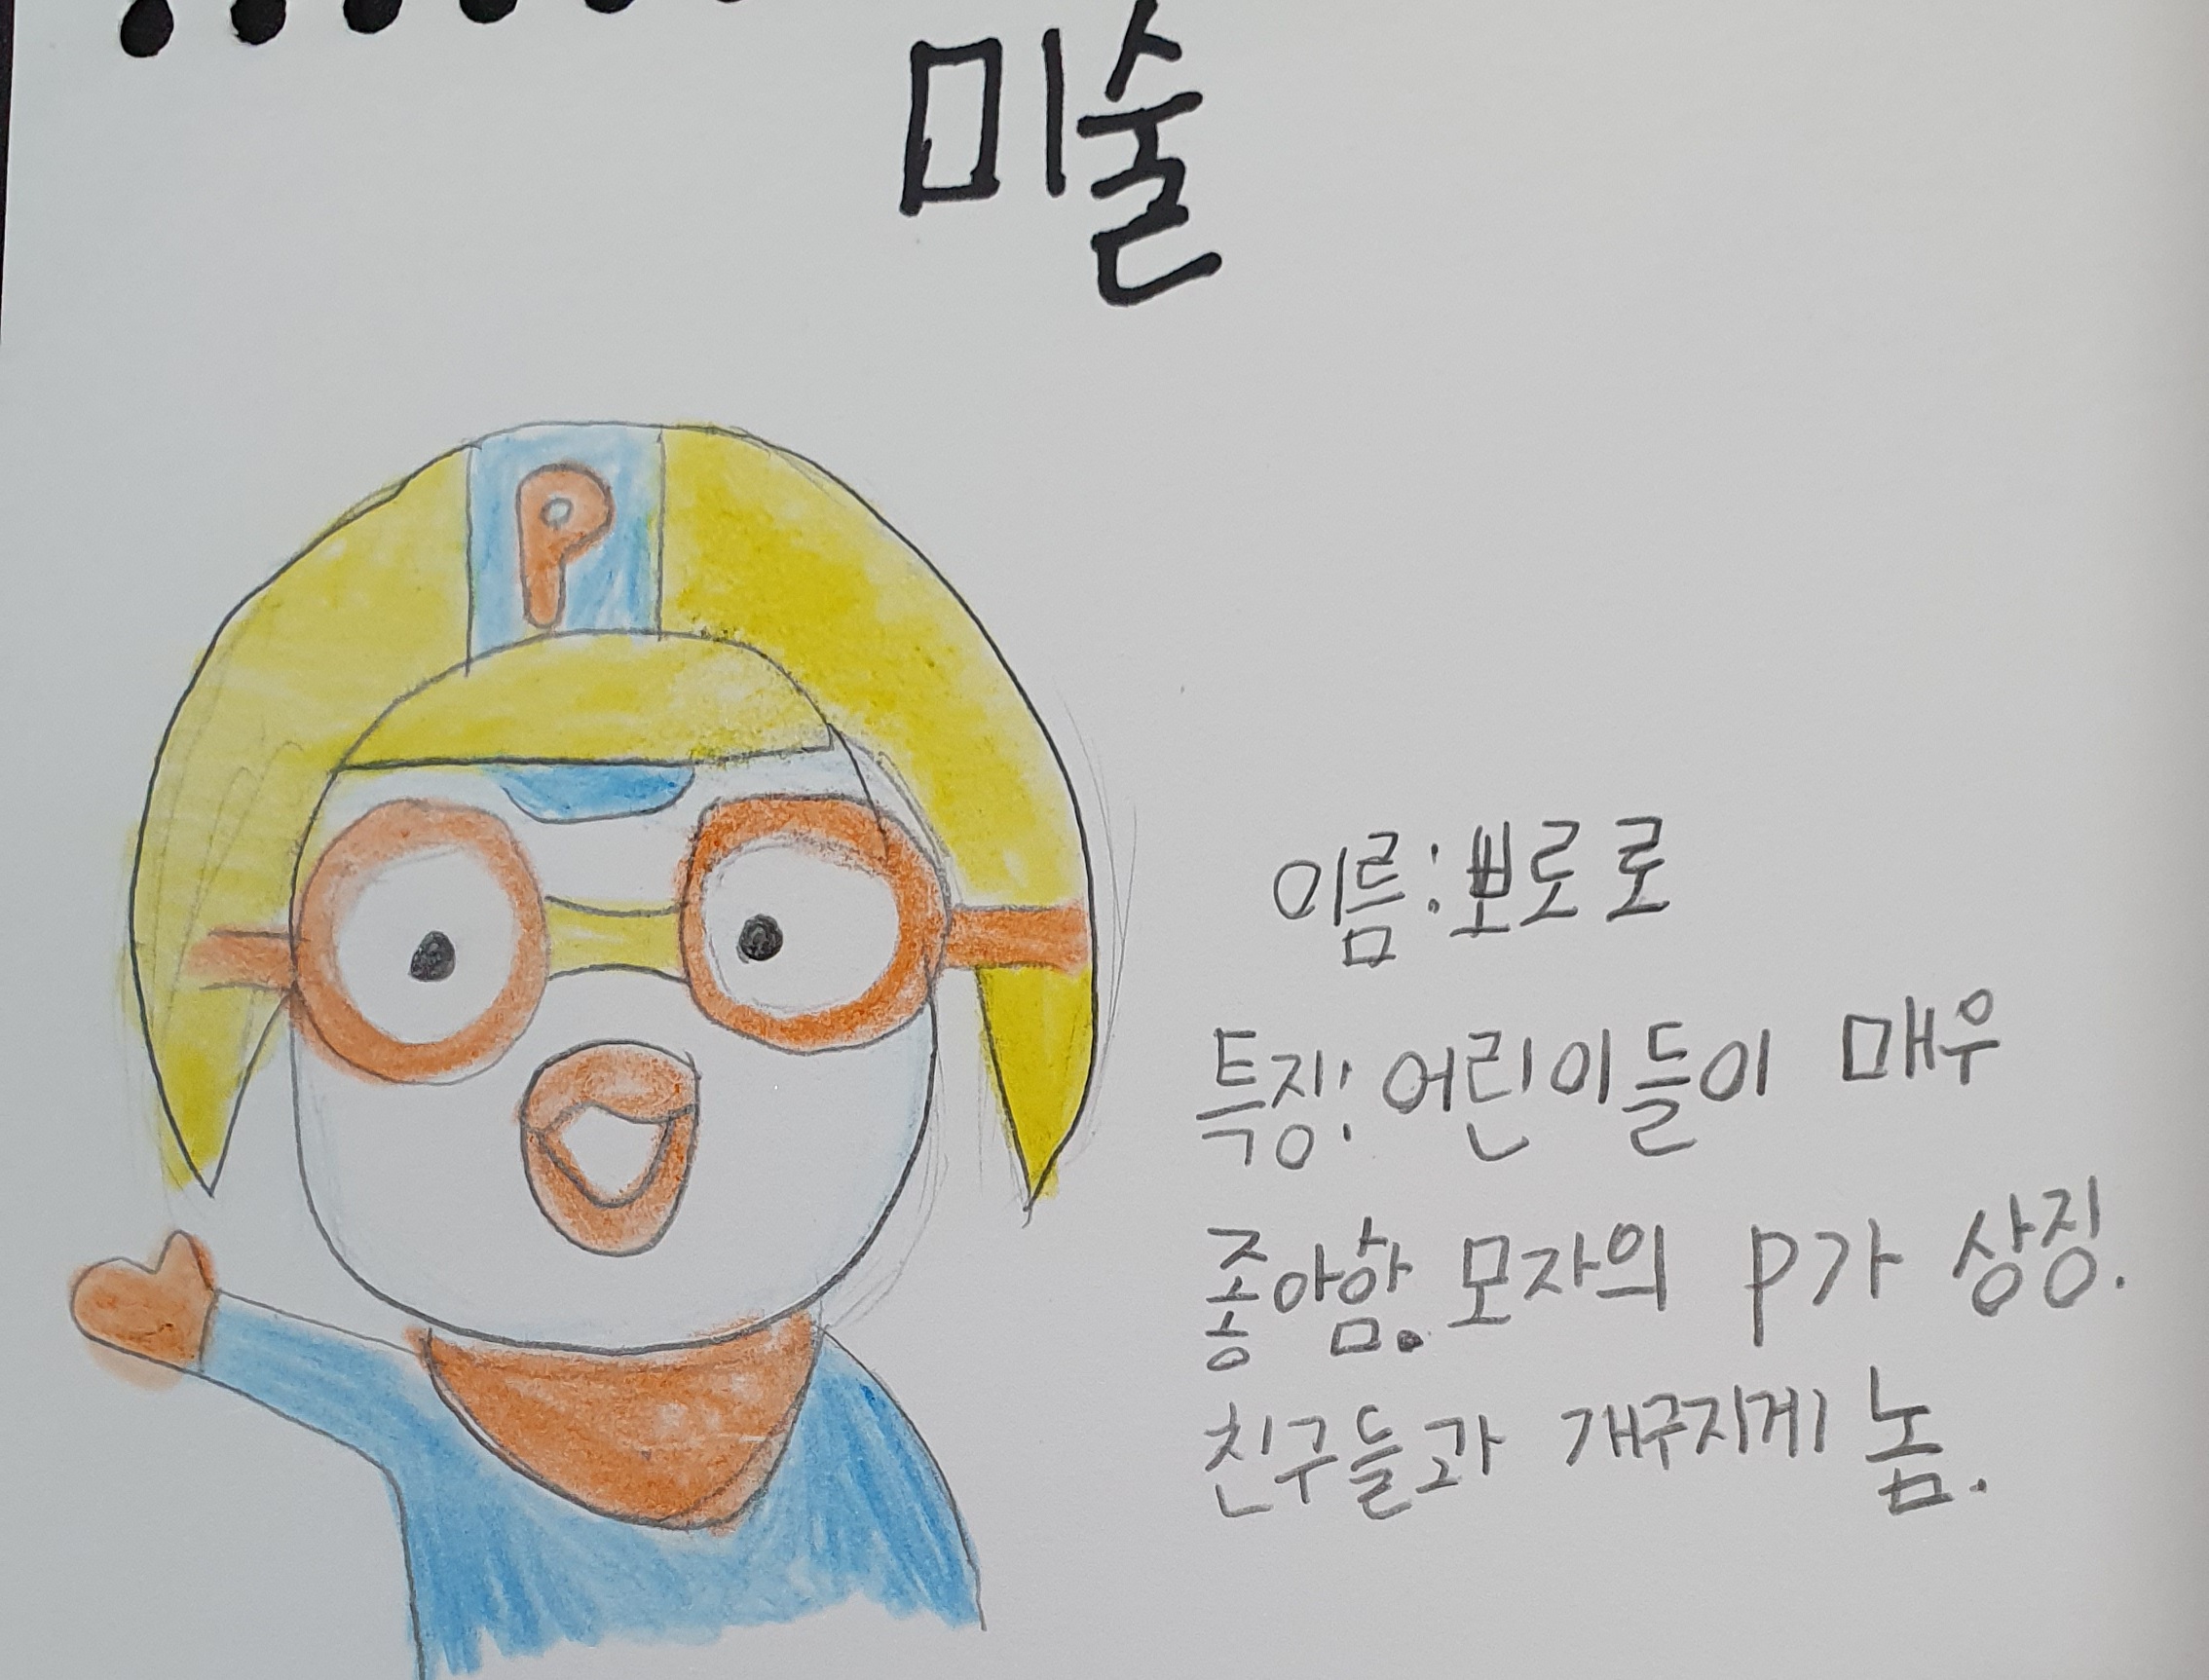 미술
P
이름:뽀로로
특징:어린이들이 매우
좋아함. 모자의 P가 상징.
친구들과 개구지게 놈.